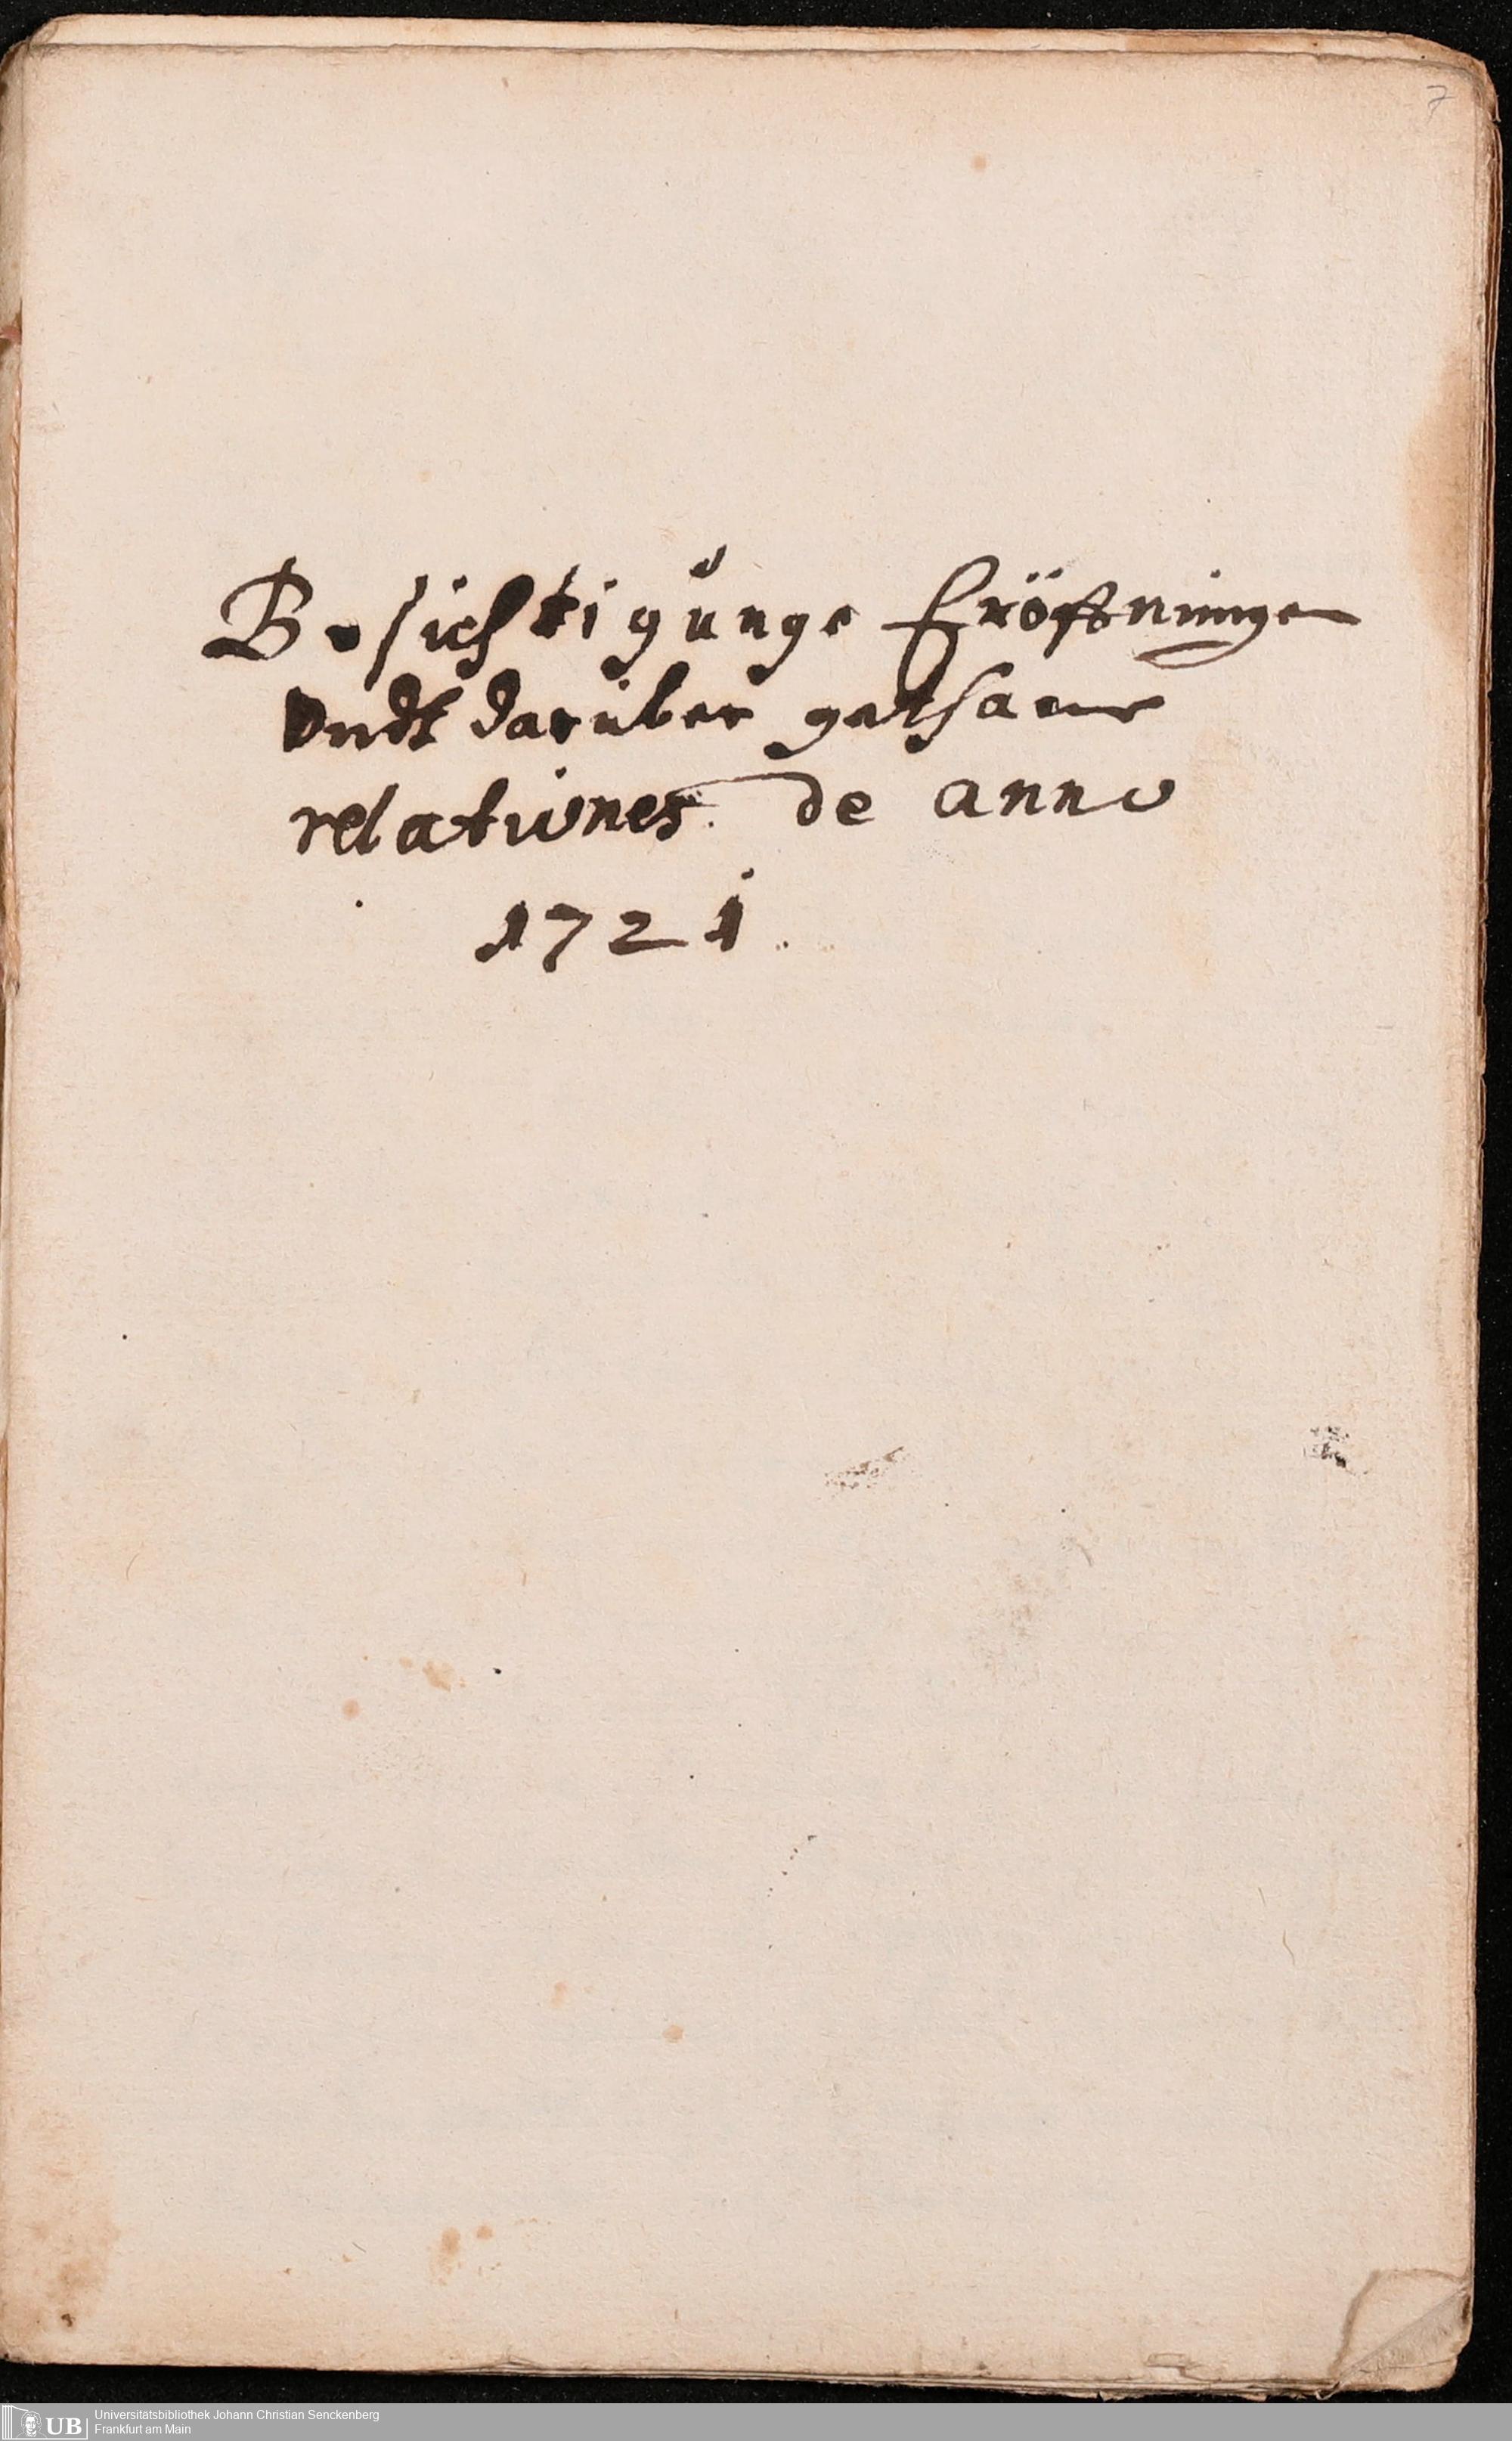 7
Besichtigunge Eröffnunge
Vndt darüber gethane
relationes de anno
1721.
UB
Universitätsbibliothek Johann Christian Senckenberg
Frankfurt am Main